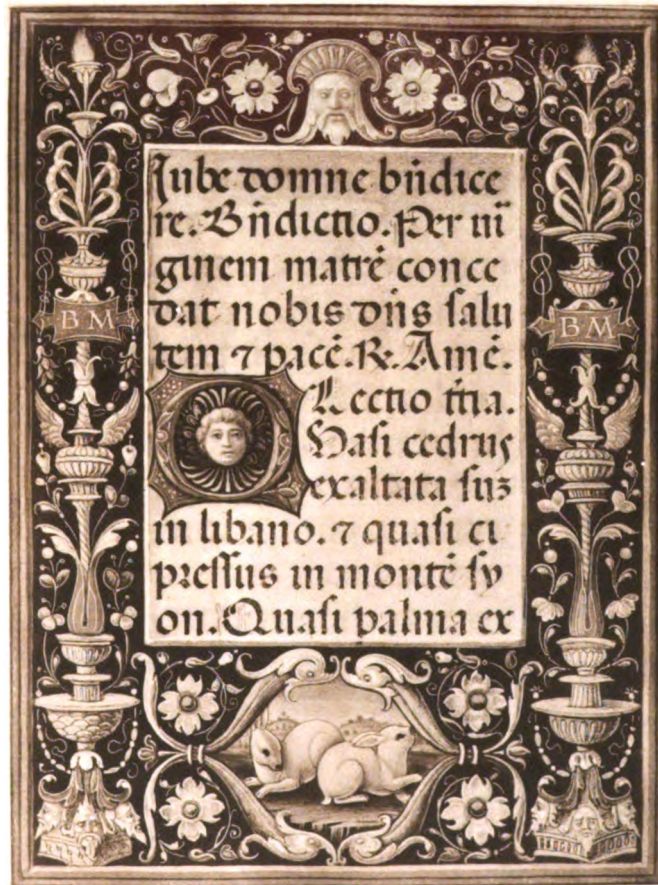 Iube domne bn̄dice
re. Bn̄dictio. Per ui
ginem matrē conce
dat nobis dn̄s salu
tem ⁊ pacē. R. Amē.
Lectio t̄ia.
Quasi cedrus
exaltata suꝫ
in libano. ⁊ quasi ci
pressus in monte sy
on. Quasi palma ex
B M
B M